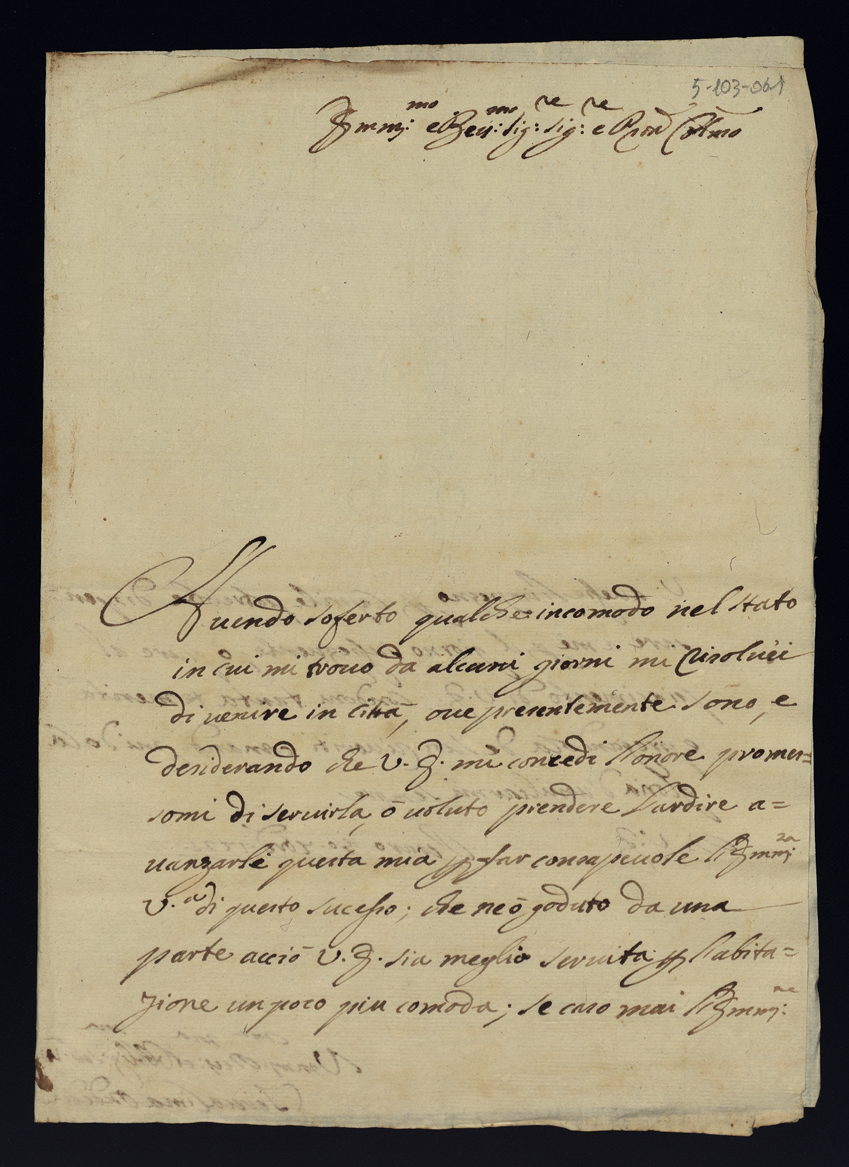 5-103-061
Emmi:mo e Reu:mo Sig:re Sig:re e Pron Collmo
Auendo soferto qualche incomodo nel stato
in cui mi trouo da alcuni giorni mi risoluei
di venire in città, oue presentemente sono, e
desiderando che V. E. mi concedi l'onore promes=
somi di seruirla, ò uoluto prendere l'ardire a=
uanzarle questa mia p far consapeuole l'Emmi:za
V.a di questo sucesso; che ne ò goduto da una
parte acciò V. E. sia meglio seruita p l'abita=
zione un poco piu comoda; se caso mai l'Emmi:ne